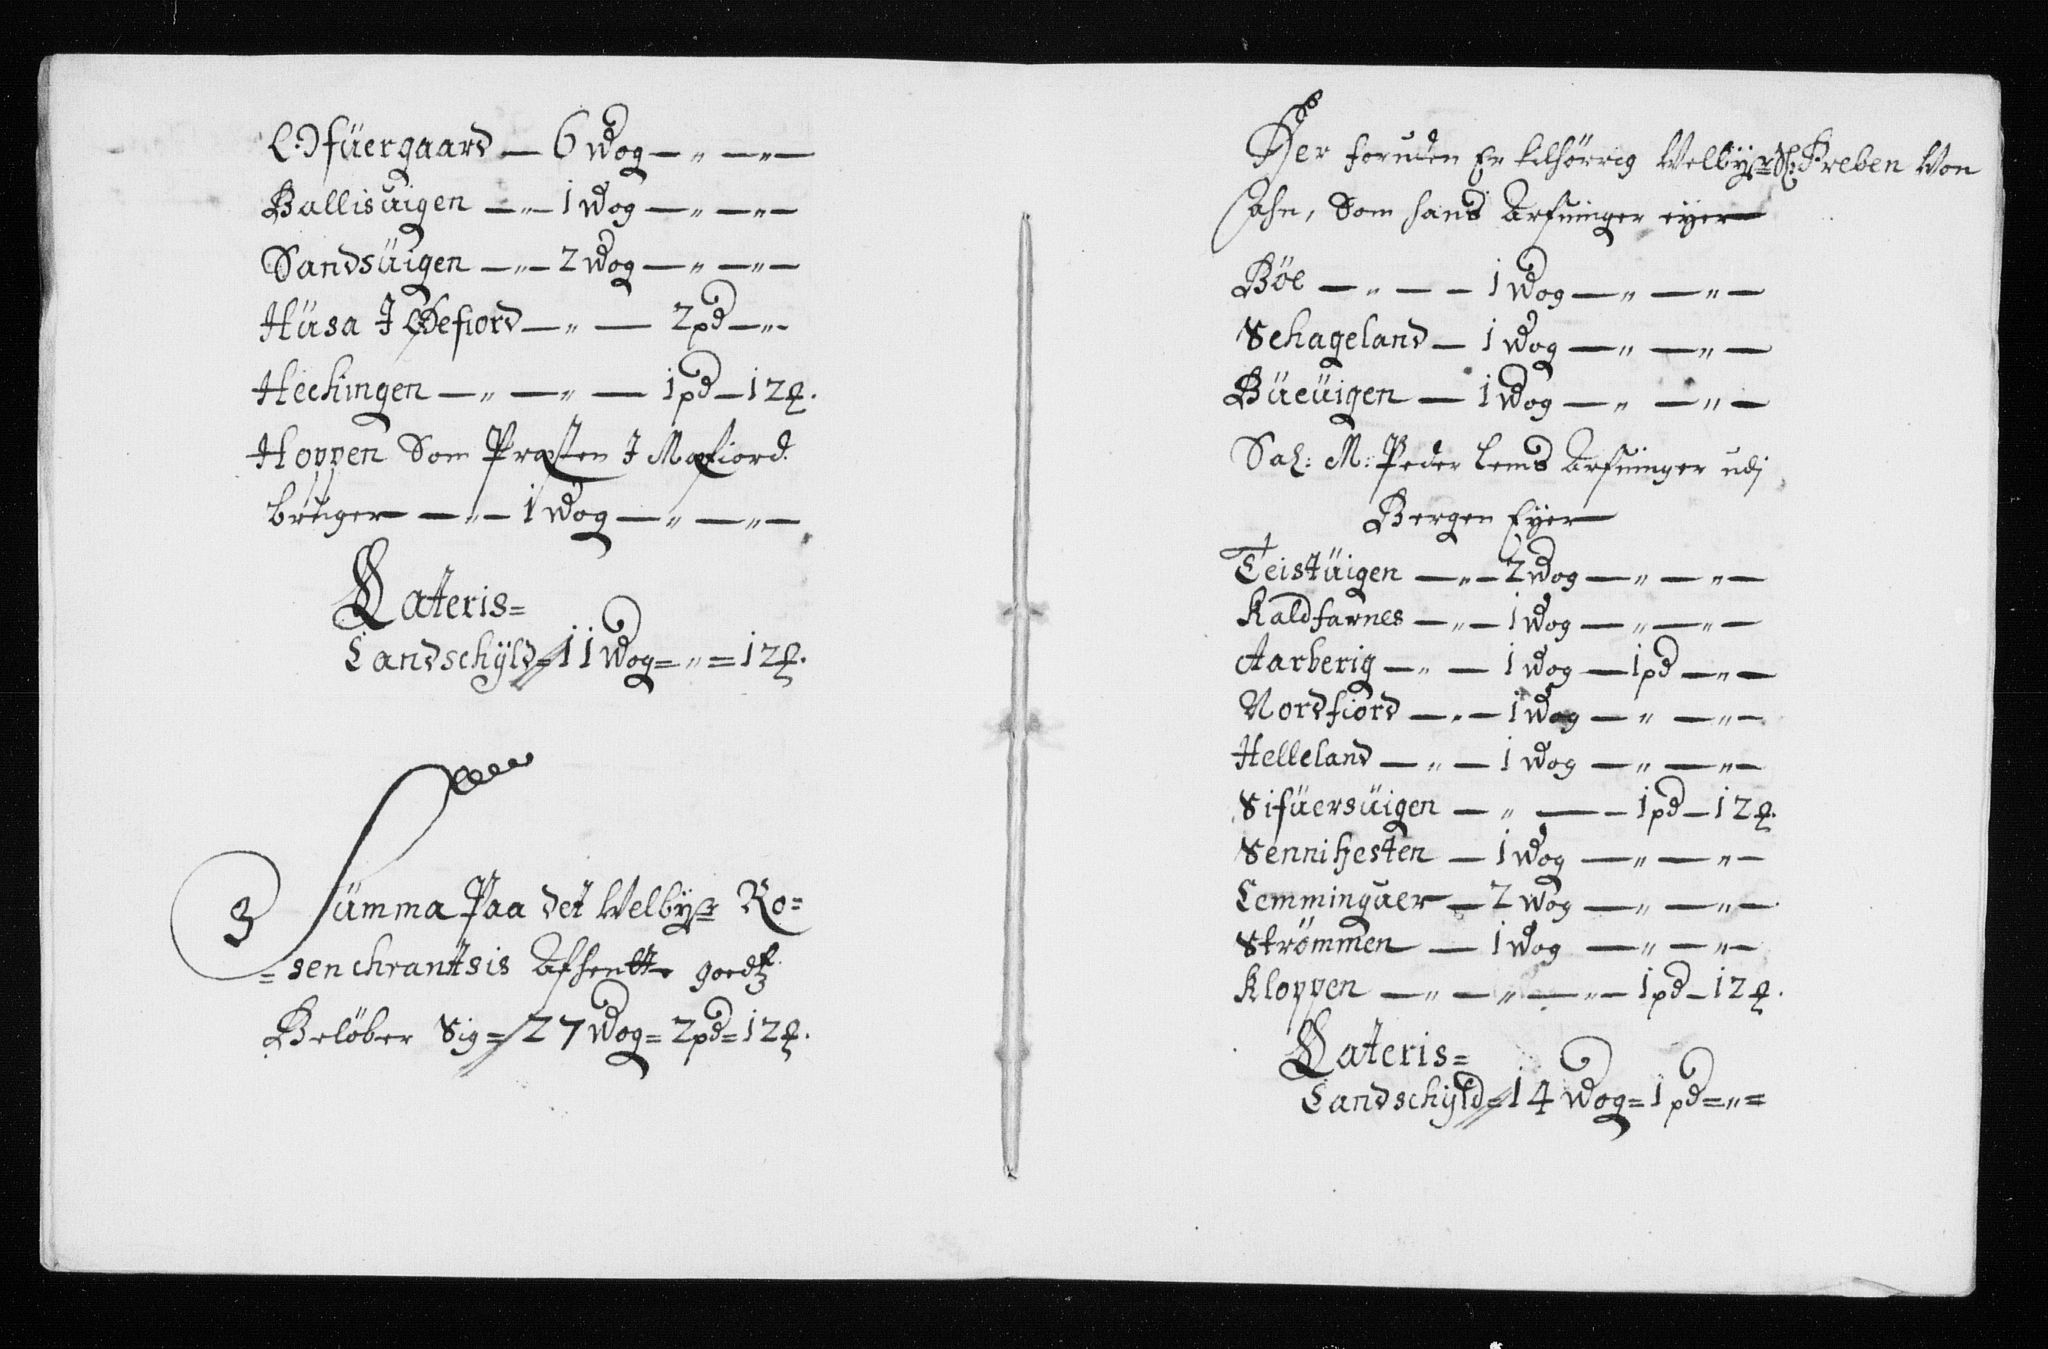 Offüergaard — 6 wog — „ — „ —
Ballisuigen — „ — 1 wog — „ — „ —
Sandsüigen — „ — 2 wog — „ — „ —
Hüsa I Defiord — „ — 2 pd — „ -
Hechingen — „ — „ — 1 pd — 12 ꝶ.
Hoppen Som Præsten I Mafiord
bruger — „ — 1 wog — „ — „ —
Lateris =
Landschÿld = 11 wog = „ = 12 ꝶ.
3 Sümma Paa det Velbyr Ro=
=senchrantsis Afsentte goedtz
Beløber Sig = 27 wog = 2 pd = 12 ꝶ.
Her foruden Er tilhörrig Velbyr Sl: Preben Von
Ahn, Som hans Arfuinger eyer
Böe — „ — — 1 wog — „ — „ —
Schageland — 1 wog — „ — „ —
Büeüigen — 1 wog — „ — „ —
Sal: M: Peder Lems Arfuinger udj
Bergen Eyer
Teistüigen — „ — 2 wog — „ — „ —
Kaldfarnes — „ — 1 wog — „ — „ —
Aarberig — „ — 1 wog — 1 pd — „ —
Nordfiord — „ — 1 wog — „ — „ —
Helleland — „ — 1 wog — „ — „ —
Sifüersüigen — „ — — 1 pd — 12 ꝶ.
Sennihesten — 1 wog — „ — „ —
Lemminguer — 2 wog — „ — „ —
Strømmen — 1 wog — „ — „ —
Kloppen — „ — „ — „ — 1 pd — 12 ꝶ.
Lateris =
Landschÿld = 14 wog = 1 pd = „ =